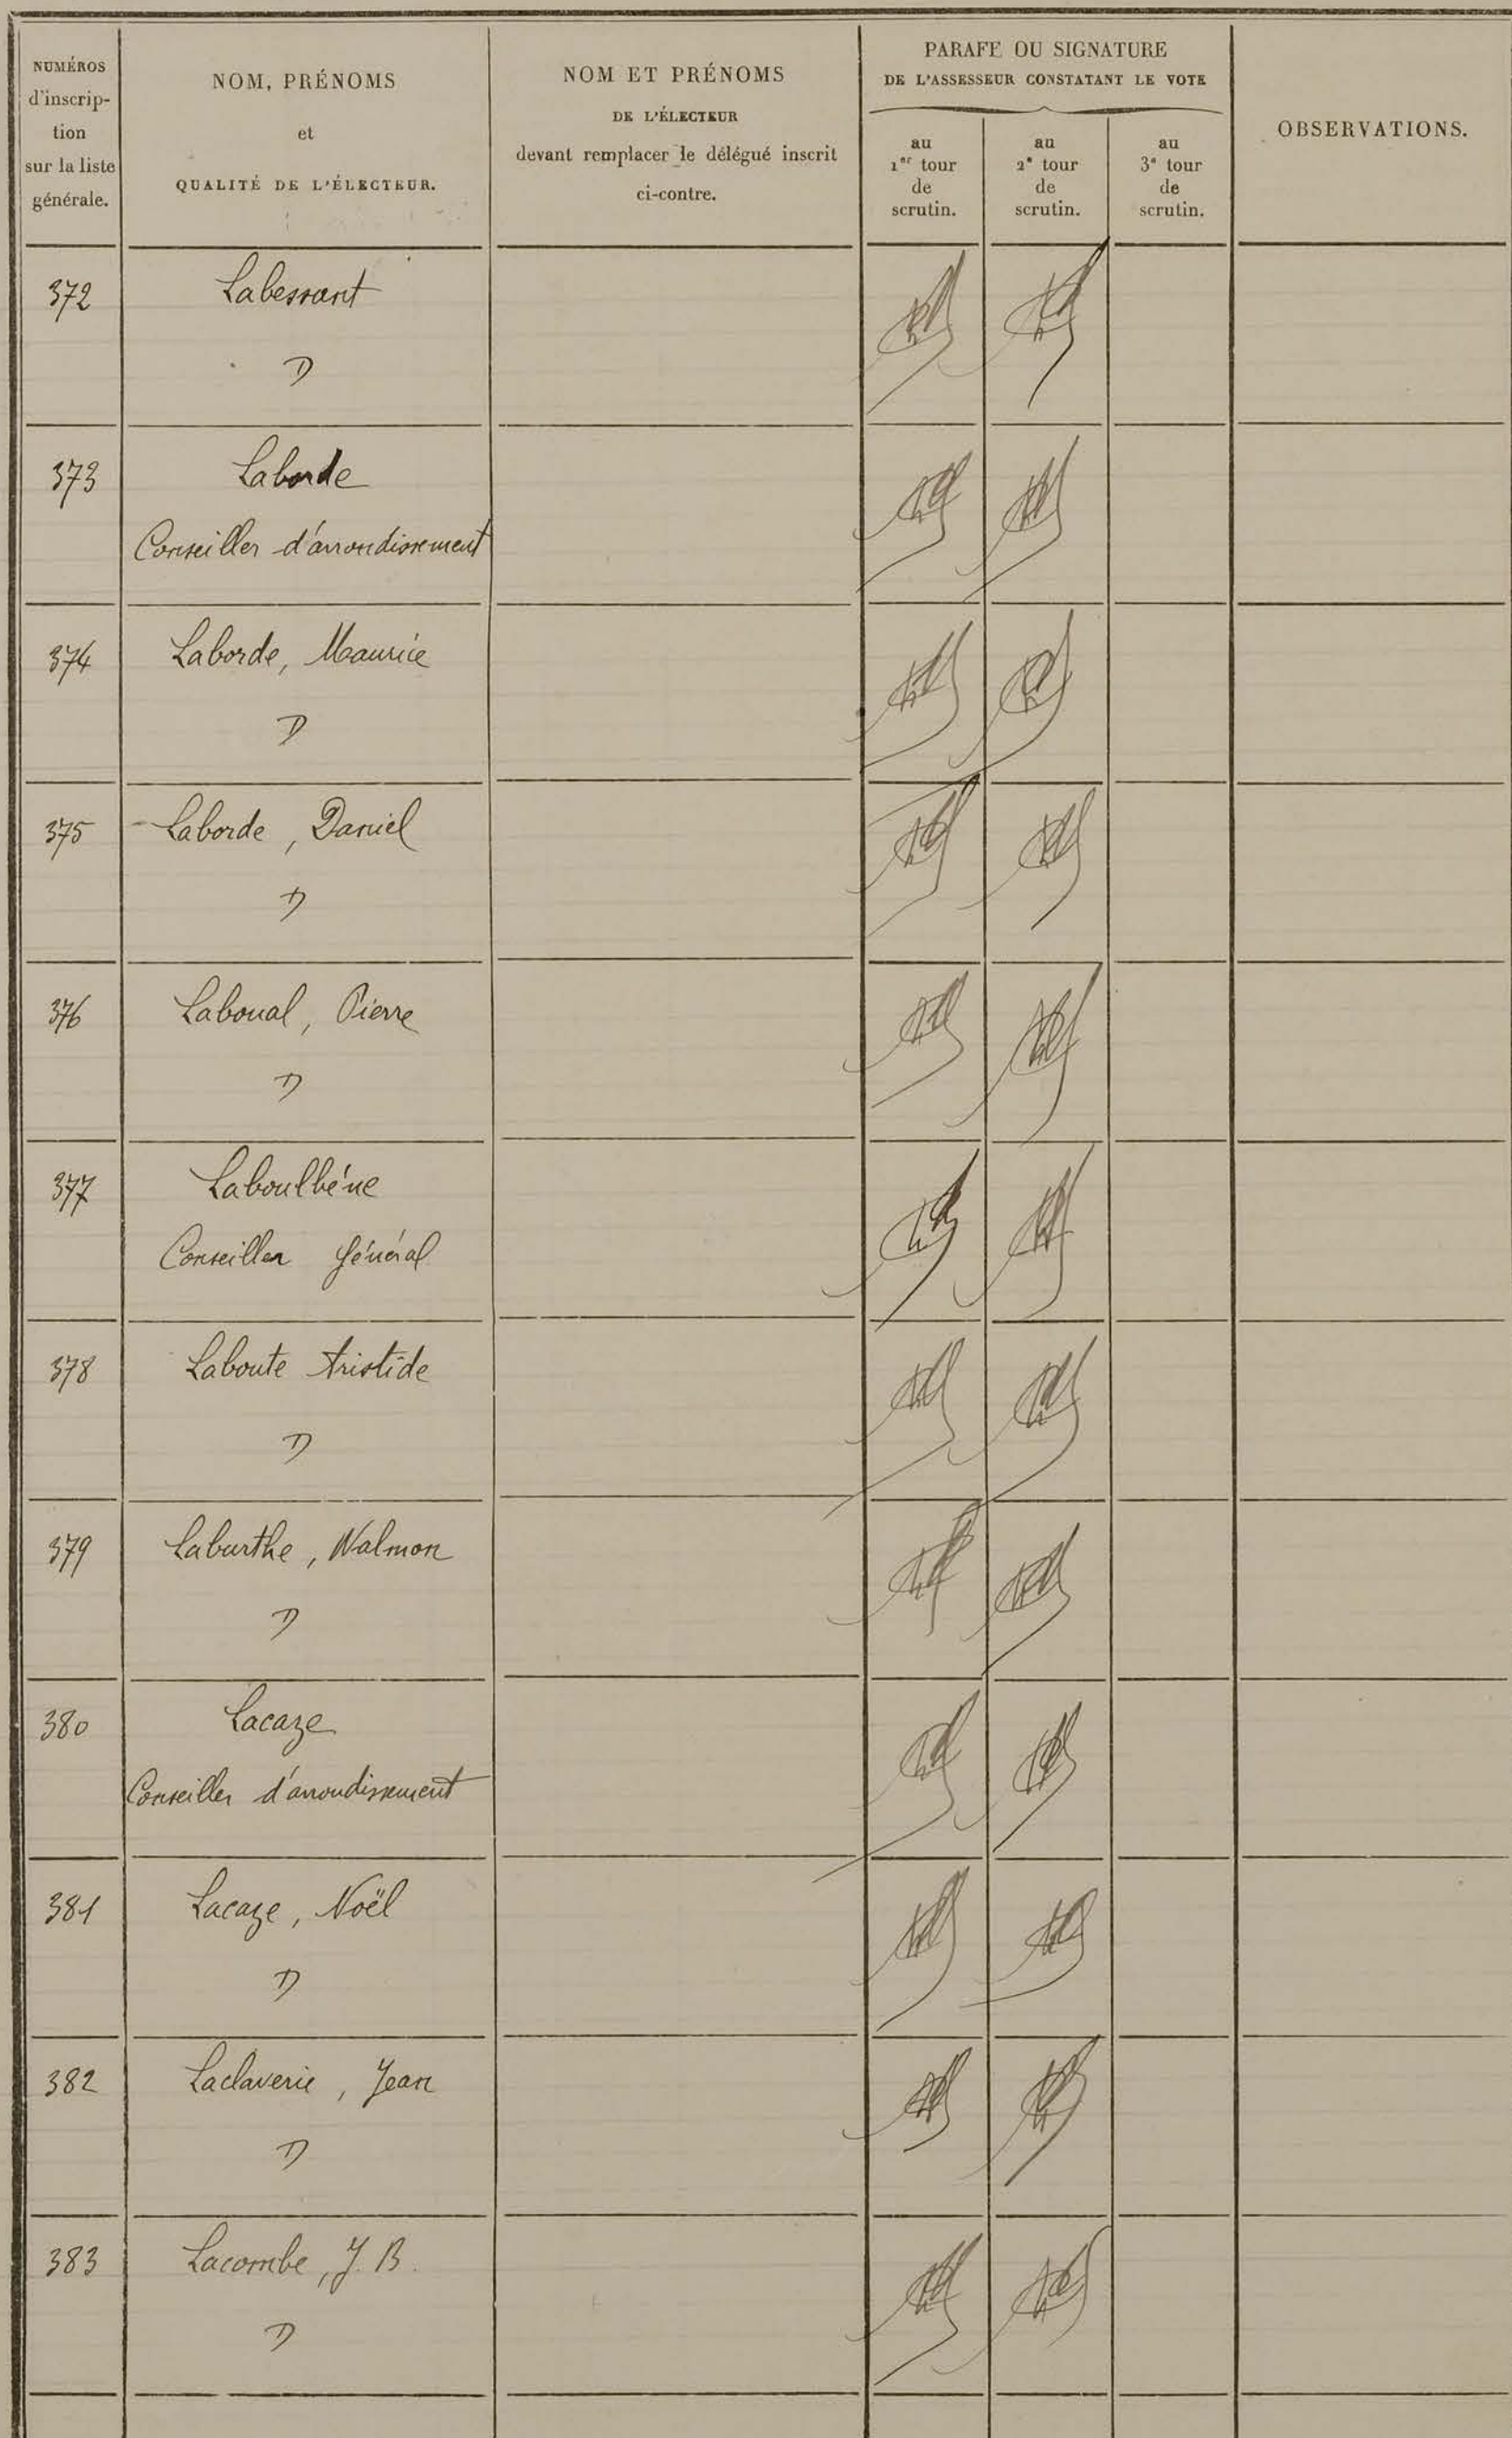 NUMÉROS
d'inscrip-
tion
sur la liste
générale.
NOM, PRÉNOMS
et
QUALITÉ DE L'ÉLECTEUR.
NOM ET PRÉNOMS
DE L'ÉLECTEUR
devant remplacer le délégué inscrit
ci-contre.
PARAFE OU SIGNATURE
DE L'ASSESSEUR CONSTATANT LE VOTE
au
1er tour
de
scrutin.
au
2e tour
de
scrutin.
au
3e tour
de
scrutin.
OBSERVATIONS.
372 Labessant
D
373 Laborde
Conseiller d'arrondissement
374 Laborde, Maurice
D
375 Laborde, Daniel
D
376 Laboual, Pierre
D
377 Laboulbéne
Conseiller Général
378 Laboute Aristide
D
379 Laburthe, Walmon
D
380 Lacaze
Conseiller d'arrondissement
381 Lacaze, Noël
D
382 Laclaverie, Jean
D
383 Lacombe, J. B.
D